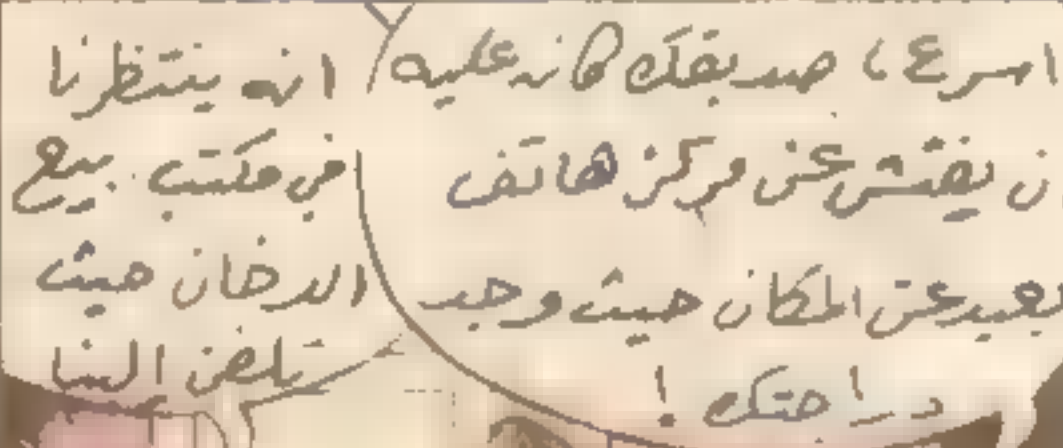 اسرع، صديقك كان عليه
ن يفتش عن مركز هاتف
بعيد عن المكان حيث وجد
دراجتك !
انه ينتظرنا
في مكتب بيع
الدخان حيث
تلفن الينا